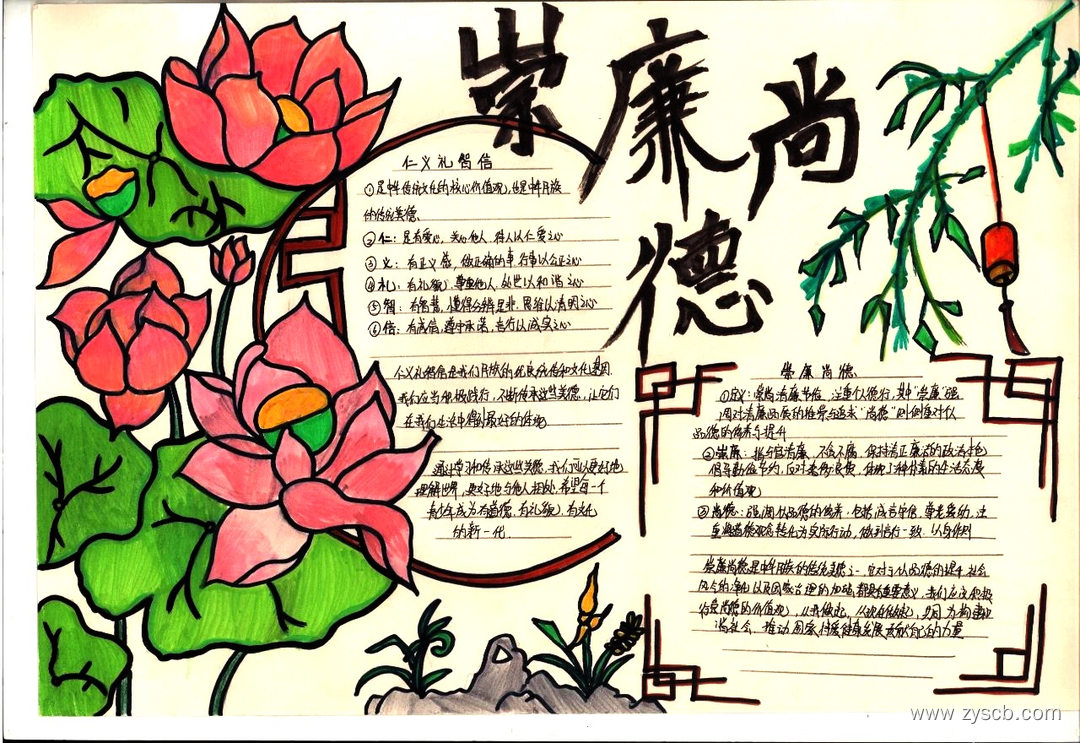 崇廉尚
德
仁义礼智信
①是中华传统文化的核心价值观,也是中华民族
的传统美德、
②仁:是有爱心,关心他人,待人以仁爱之心
③义:有正义感,做正确的事,行事以公正之心
④礼:有礼貌,尊重他人,处世以和谐之心
⑤智:有智慧,懂得分辨是非,思维以清明之心
⑥信:有诚信,遵守承诺,言行以诚实之心
仁义礼智信是我们民族的优良传统和文化基因
我们应当积极践行,不断传承这些美德,让它们
在我们生活中得到最好的体现
通过学习和传承这些美德,我们可以更好地
理解世界,更好地与他人相处,希望每一个
青少年成为有道德,有礼貌,有文化
的新一代.
崇廉尚德
①定义:崇尚清廉节俭,注重个人德行,其中"崇廉"强
调对清廉品质的推崇与追求"尚德"则侧重对个人
品德的修养与提升
②崇廉:指为官清廉,不贪不腐,保持清正廉洁的政治本色
倡导勤俭节约,反对奢侈浪费,体现了种朴素的生活态度
和价值观
③尚德:强调个人品德的修养,包括诚实守信,尊老爱幼,注
重将道德观念转化为实际行动,做到言行一致.以身作则
崇廉尚德是中华民族的传统美德之一,应对于个人品德的提升,社会
风气的净化以及国家治理的加强,都具有重要意义,我们应该积极
价值观,从我做起,从现在做起,共同为构建和
谐社会、推动国家持续健康发展贡献自己的力量
www.zyscb.com